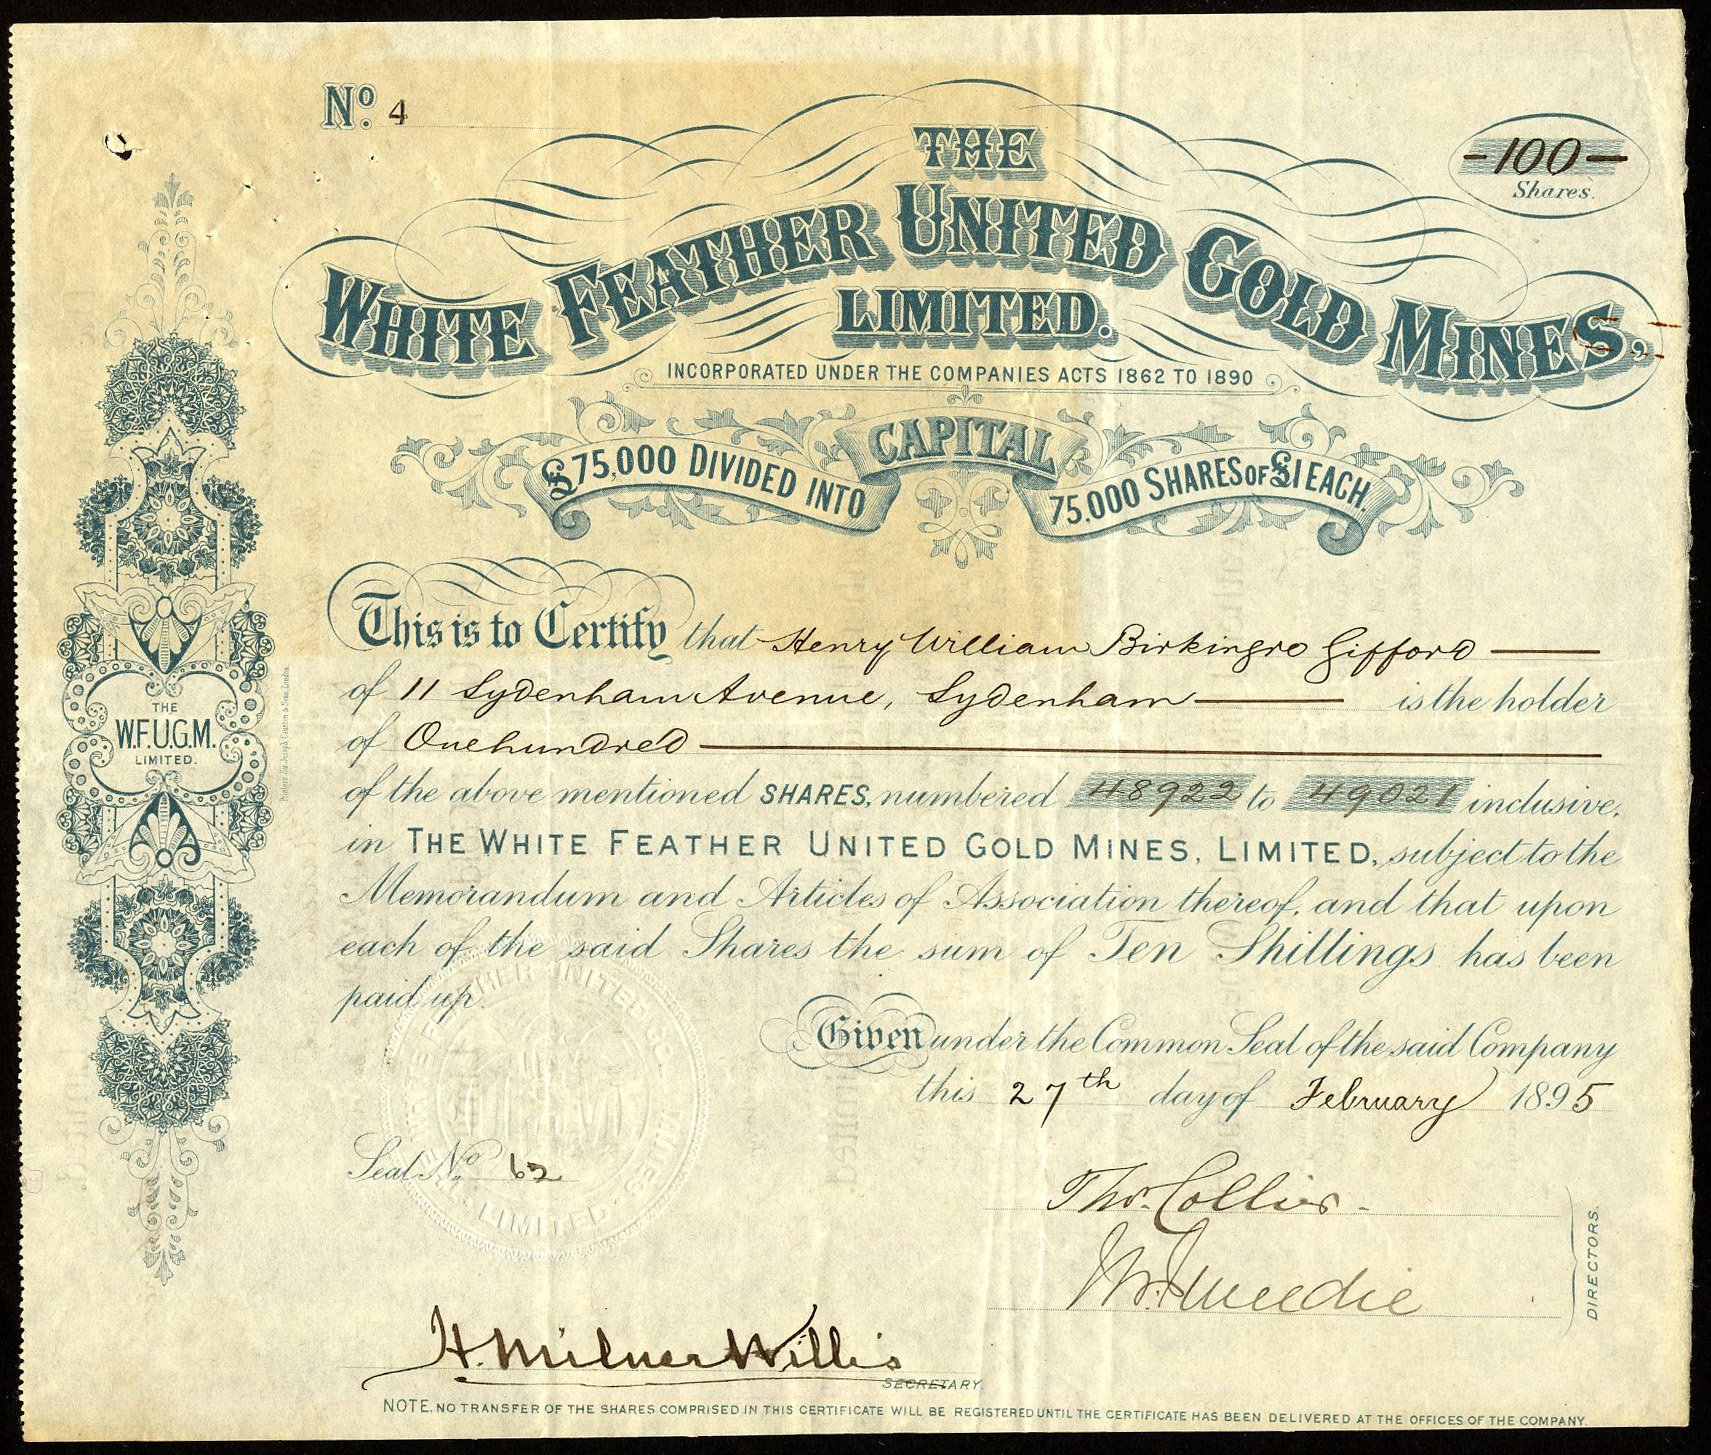 No. 4
-100-
Shares.
THE
WHITE FEATHER UNITED GOLD MINES,
LIMITED.
INCORPORATED UNDER THE COMPANIES ACTS 1862 TO 1890
CAPITAL
£75,000 DIVIDED INTO 75,000 SHARES OF £1 EACH.
This is to Certify that Henry William Birkingro Gifford
of 11 Sydenham Avenue, Sydenham is the holder
of One hundred
of the above mentioned SHARES, numbered 48922 to 49021 inclusive,
in THE WHITE FEATHER UNITED GOLD MINES, LIMITED, subject to the
Memorandum and Articles of Association thereof, and that upon
each of the said Shares the sum of Ten Shillings has been
paid up.
Given under the Common Seal of the said Company
this 27th day of February 1895
Seal No. 62
Thos. Collier.
DIRECTORS.
H. Milner Willis
SECRETARY.
NOTE. NO TRANSFER OF THE SHARES COMPRISED IN THIS CERTIFICATE WILL BE REGISTERED UNTIL THE CERTIFICATE HAS BEEN DELIVERED AT THE OFFICES OF THE COMPANY.
THE
W.F.U.G.M.
LIMITED.